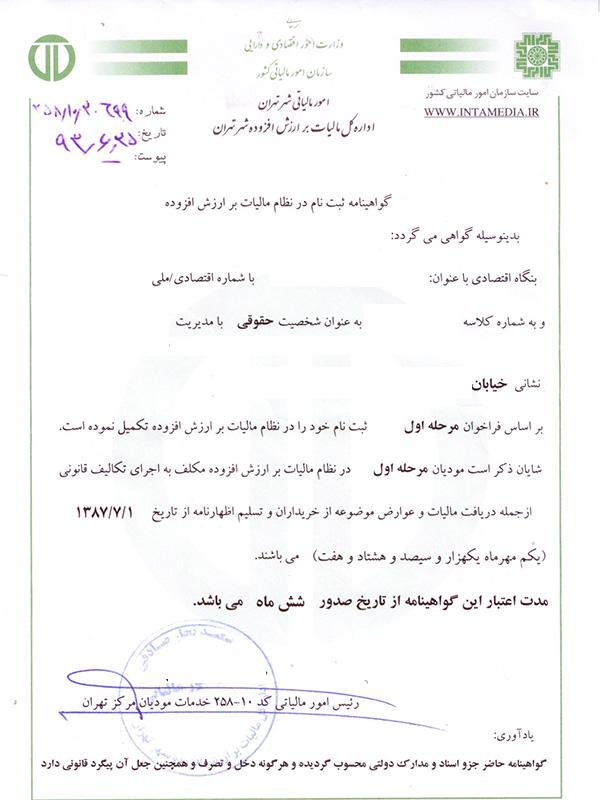 وزارت امور اقتصادی و دارایی
سازمان امور مالیاتی کشور
امور مالیاتی شهر تهران
اداره کل مالیات بر ارزش افزوده شهر تهران
سایت سازمان امور مالیاتی کشور
WWW.INTAMEDIA.IR
شماره:
تاریخ: ۹۳/۶/۲۵
پیوست:
گواهینامه ثبت نام در نظام مالیات بر ارزش افزوده
بدینوسیله گواهی می گردد:
بنگاه اقتصادی با عنوان: با شماره اقتصادی/ملی
و به شماره کلاسه به عنوان شخصیت حقوقی با مدیریت
نشانی خیابان
بر اساس فراخوان مرحله اول ثبت نام خود را در نظام مالیات بر ارزش افزوده تکمیل نموده است.
شایان ذکر است مودیان مرحله اول در نظام مالیات بر ارزش افزوده مکلف به اجرای تکالیف قانونی
ازجمله دریافت مالیات و عوارض موضوعه از خریداران و تسلیم اظهارنامه از تاریخ ۱۳۸۷/۷/۱
(یکم مهرماه یکهزار و سیصد و هشتاد و هفت) می باشند.
مدت اعتبار این گواهینامه از تاریخ صدور شش ماه می باشد.
رئیس امور مالیاتی کد ۱۰-۲۵۸ خدمات مودیان مرکز تهران
یادآوری:
گواهینامه حاضر جزو اسناد و مدارک دولتی محسوب گردیده و هرگونه دخل و تصرف و همچنین جعل آن پیگرد قانونی دارد